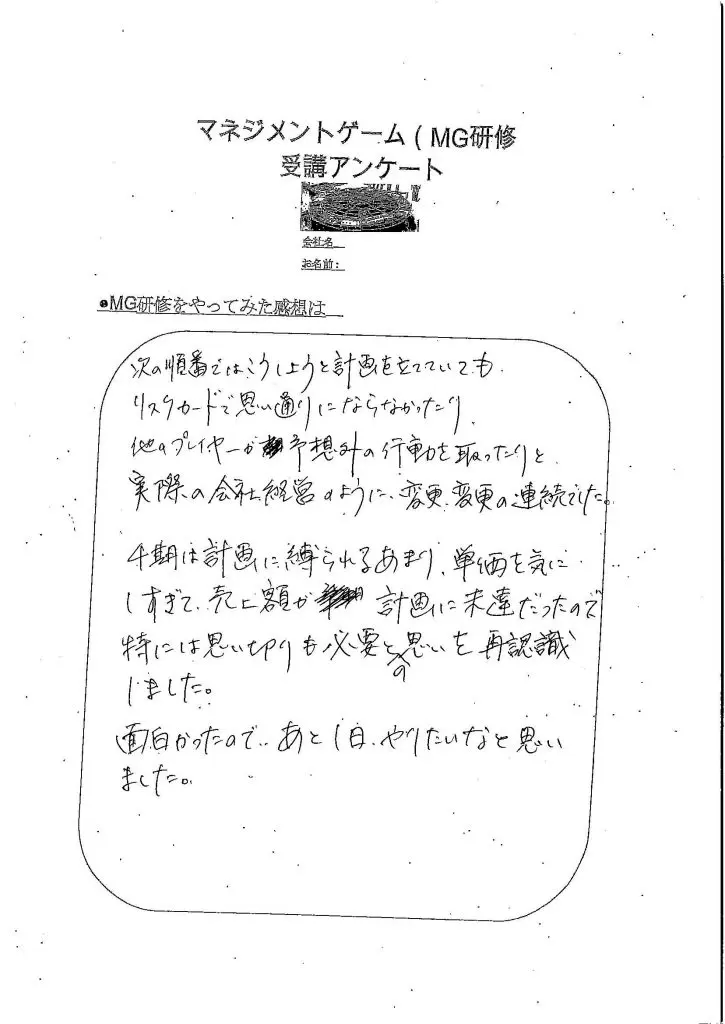 マネジメントゲーム(MG研修
受講アンケート
会社名
お名前:
●MG研修をやってみた感想は
次の順番ではこうしようと計画を立てていても
リスクカードで思い通りにならなかったり
他のプレイヤーが予想外の行動を取ったりと
実際の会社経営のように、変更、変更の連続でした。
4期は計画に縛られるあまり、単価を気に
しすぎて、売上額が計画に未達だったので
特には思い切りも必要との思いを再認識
しました。
面白かったので、あと1日、やりたいなと思い
ました。